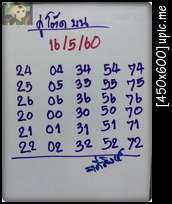 คู่โต๊ด บน
16/5/60
24 04 34 54 74
25 05 35 55 75
26 06 36 56 76
20 00 30 50 70
21 01 31 51 71
22 02 32 52 72
[450x600] upic.me